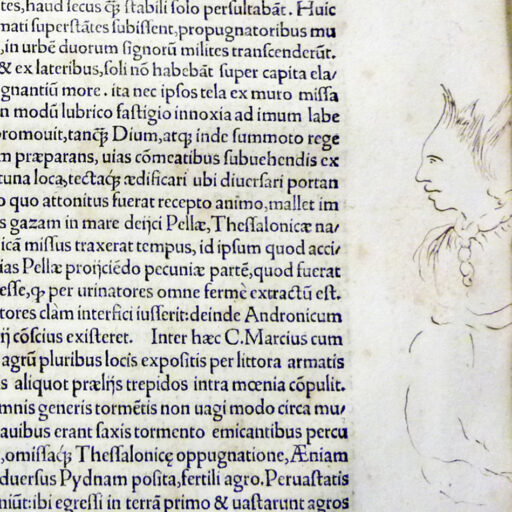 tes, haud secus q̃ stabili solo persultabãt. Huic
mati superstãtes subissent, propugnatoribus mu
, in urbẽ duorum signorũ milites transcenderũt.
& ex lateribus, soli nõ habebãt super capita ela/
gnantiũ more. ita nec ipsos tela ex muro missa
n modũ lubrico fastigio innoxia ad imum labe
promouit, tancq̃ Dium, atq; inde summoto rege
m præparans, uias cõmeatibus subuehendis ex
tuna loca, tectaq; ædificari ubi diuersari portan
o quo attonitus fuerat recepto animo, mallet im
s gazam in mare deijci Pellæ, Thessalonicæ na/
icã missus traxerat tempus, id ipsum quod acci/
ias Pellæ proijciẽdo pecuniæ partẽ, quod fuerat
esse, q, per urinatores omne fermè extractũ est.
tores clàm interfici iusserit: deinde Andronicum
ij cõscius existeret. Inter hæc C. Marcius cum
agrũ pluribus locis expositis per littora armatis
s aliquot prælijs trepidos intra mœnia cõpulit.
mnis generis tormẽtis non uagi modo circa mu/
auibus erant saxis tormento emicantibus percu
, omissaq; Thessalonicę oppugnatione, Æniam
duersus Pydnam posita, fertili agro. Peruastatis
niũt: ibi egressi in terrã primo & uastarunt agros